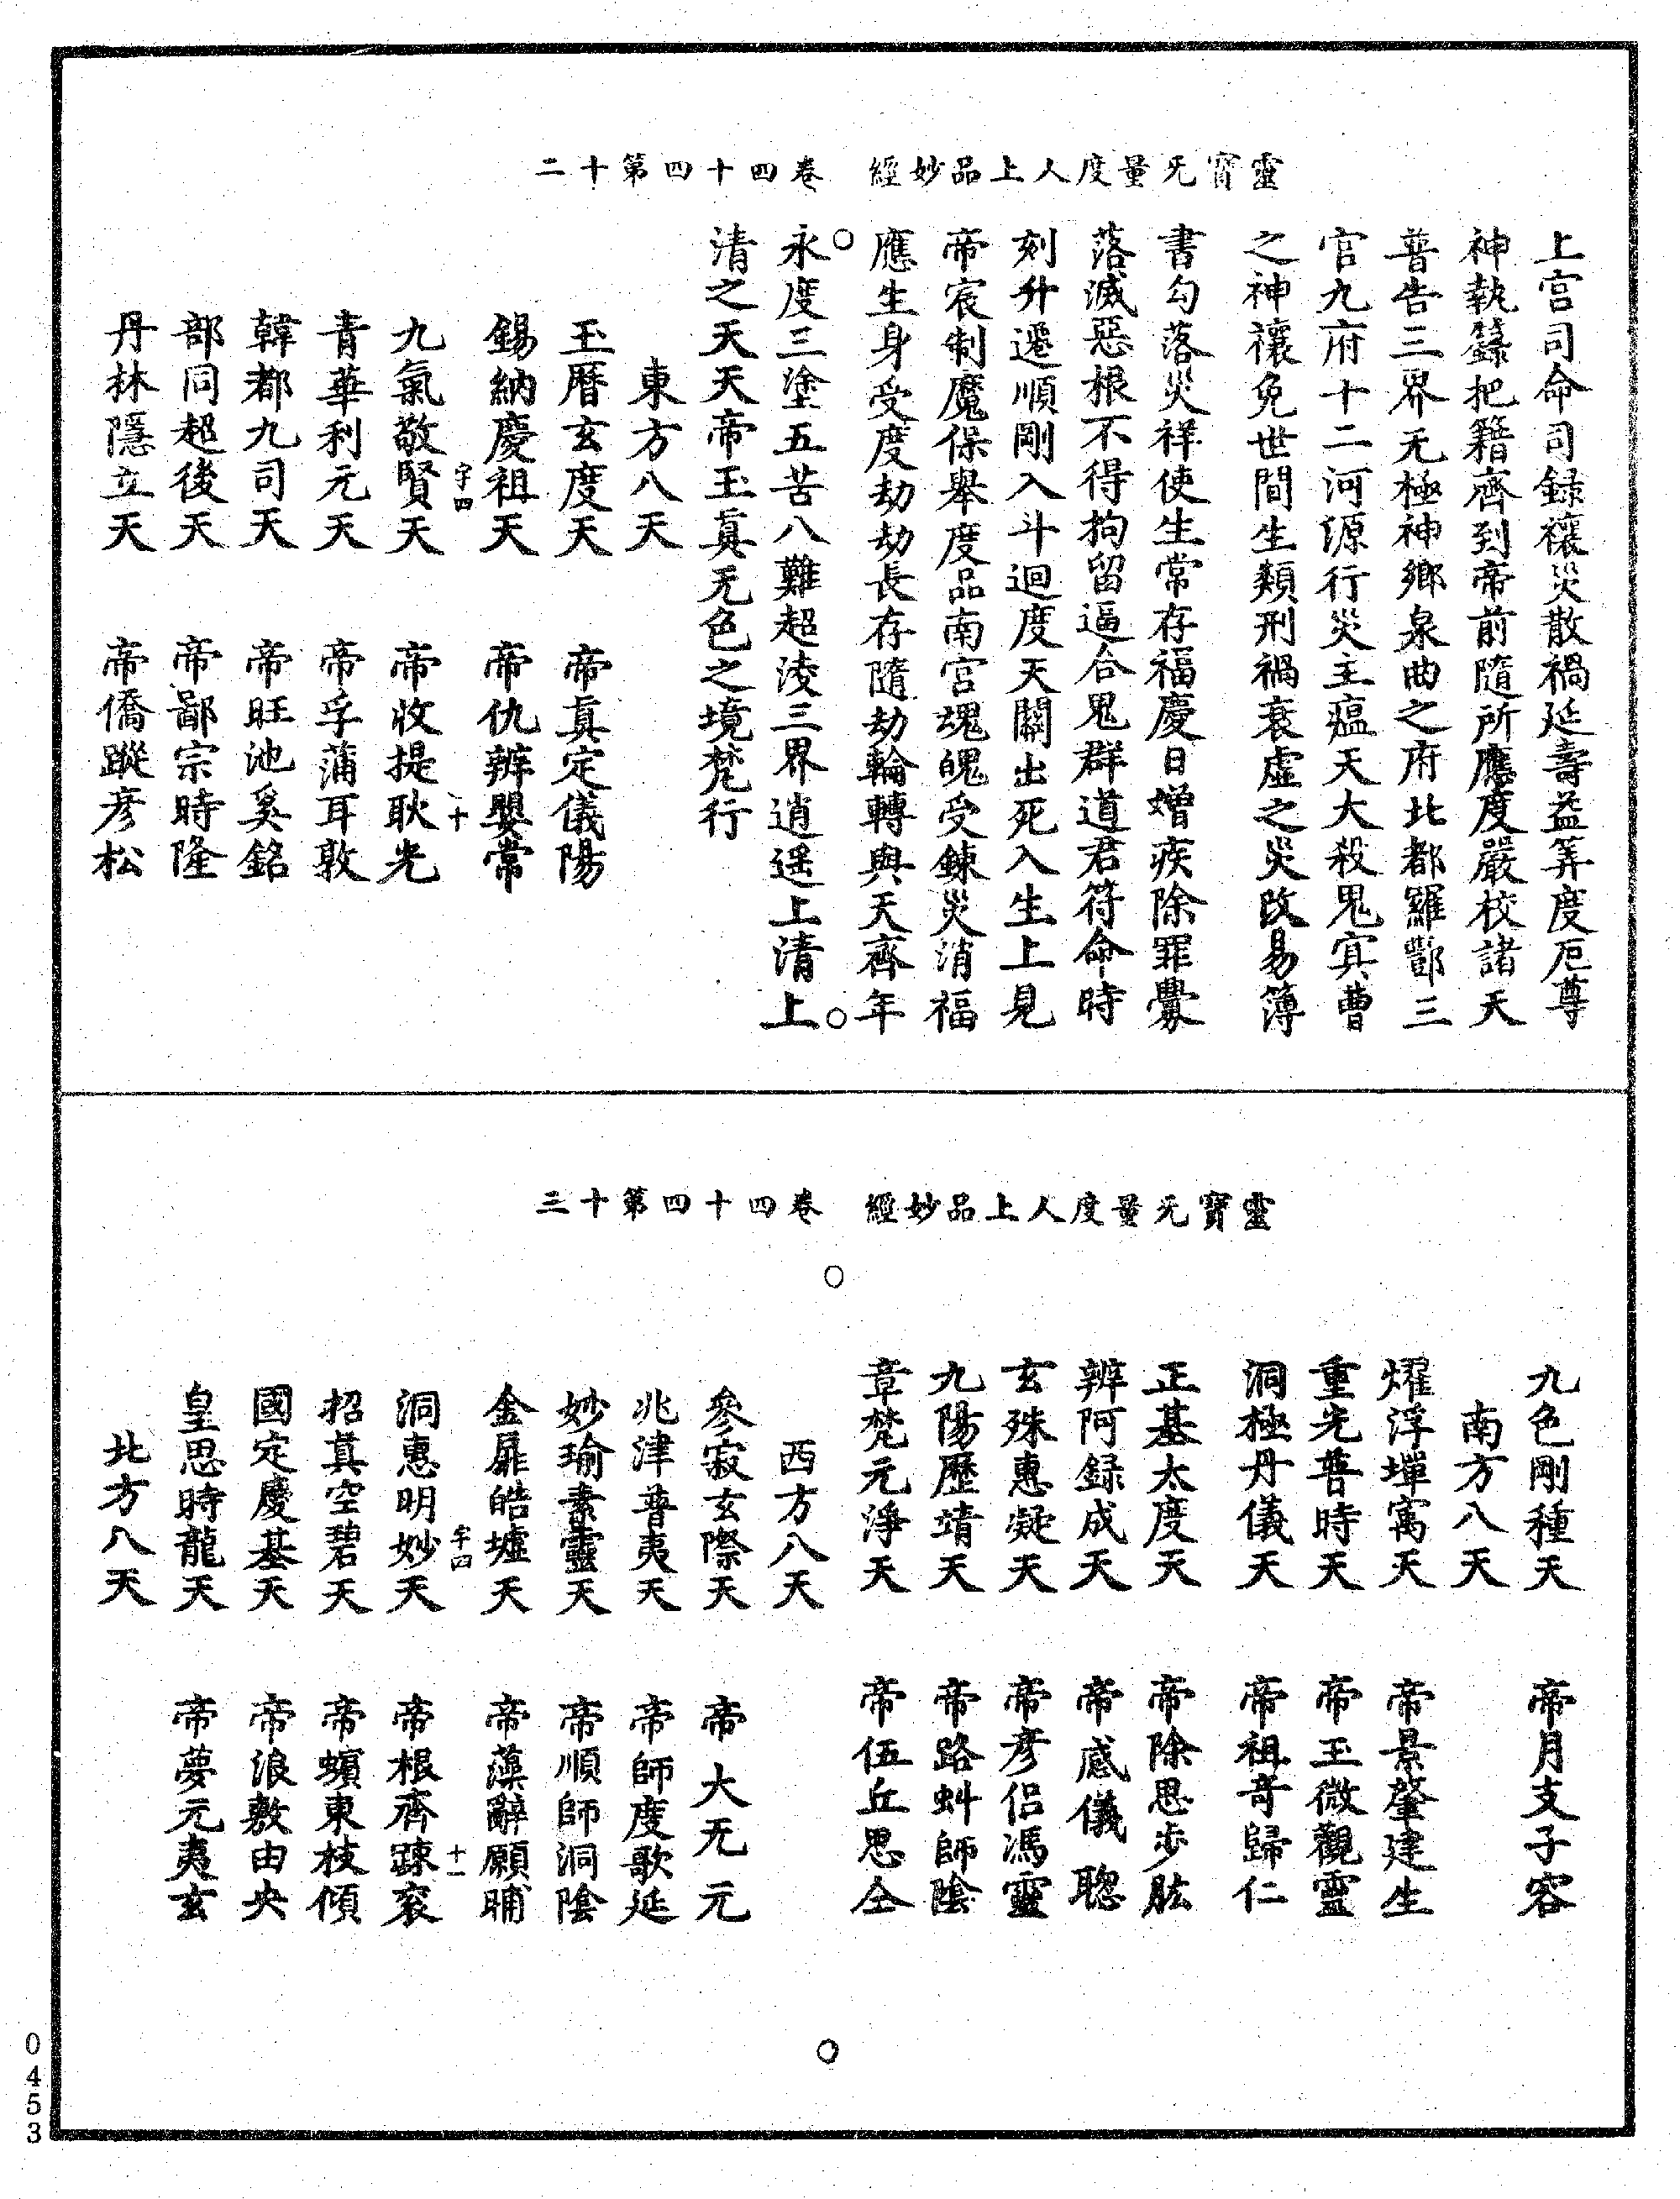 靈寶无量度人上品妙經　卷四十四第十二
上宮司命司錄禳災散禍延壽益筭度厄尊
神執籙把籍齊到帝前隨所應度嚴校諸天
普告三界无極神鄉泉曲之府北都羅酆三
官九府十二河源行災主瘟天大殺鬼冥曹
之神禳免世間生類刑禍衰虛之災改易簿
書勾落災祥使生常存福慶日增疾除罪釁
落滅惡根不得拘留逼合鬼群道君符命時
刻升遷順剛入斗迴度天關出死入生上見
帝宸制魔保舉度品南宮魂魄受鍊災消福
應生身受度劫劫長存隨劫輪轉與天齊年
永度三塗五苦八難超淩三界逍遙上清上
清之天天帝玉真无色之境梵行
東方八天
玉曆玄度天　帝真定儀陽
錫納慶祖天　帝仇辨嬰常
字四　十
九氣敬賢天　帝收提耿光
青華利元天　帝孚蒲耳敦
韓都九司天　帝旺池奚銘
部同超後天　帝鄙宗時隆
丹林隱立天　帝僑蹤彥松
靈寶无量度人上品妙經　卷四十四第十三
九色剛種天　帝月支子容
南方八天
燿浮墠寓天　帝景肇建生
重光普時天　帝玉微觀靈
洞極丹儀天　帝祖奇歸仁
正基太度天　帝除思步肱
辨阿錄成天　帝感儀聰
玄殊惠凝天　帝彥侶馮靈
九陽歷靖天　帝路蚪師陰
章梵元淨天　帝伍丘思仝
西方八天
參寂玄際天　帝大无元
兆津普夷天　帝師度歌延
妙瑜素靈天　帝順師洞陰
金扉皓墟天　帝薻辭願晡
字四　十一
洞惠明妙天　帝根齊踈袞
招真空碧天　帝蠙東枝傾
國定慶基天　帝浪敷由央
皇思時龍天　帝夢元夷玄
北方八天
0453